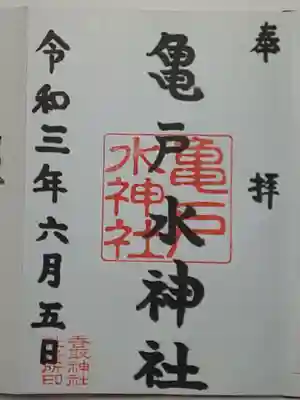 奉拝
亀戸水神社
亀戸
水神社
令和三年六月五日
香取神社
社務所印